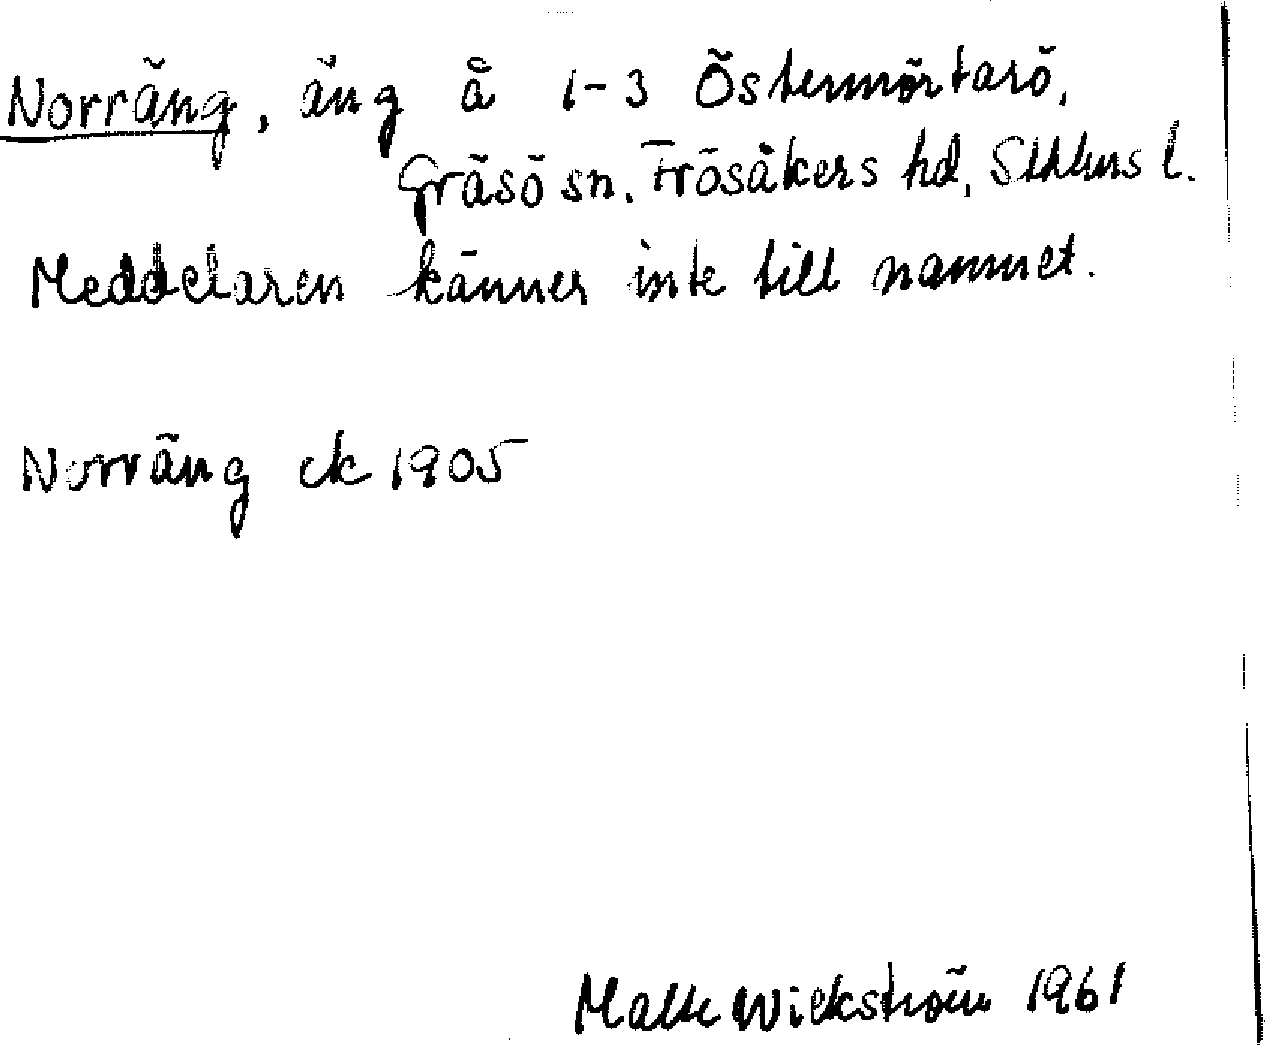 Norräng, äng å 1-3 Östermörtarö,
Gräsö sn. Frösåkers hd, Sthlms l.
Meddelaren känner inte till namnet.
Norräng ek 1905
Malte Wickström 1961